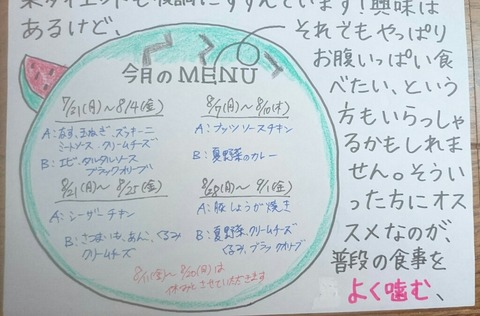 楽ダイエットも順調にすすんでいます！興味は
あるけど、
今月のMENU
7/31(月)～8/4(金)
A：なす、玉ねぎ、ズッキーニ
ミートソース、クリームチーズ
B：エビ、タルタルソース
ブラックオリーブ
8/7(月)～8/10(木)
A：ナッツソースチキン
B：夏野菜のカレー
8/21(月)～8/25(金)
A：シーザーチキン
B：さつまいも、あんこ、くるみ
クリームチーズ
8/28(月)～9/1(金)
A：豚しょうが焼き
B：夏野菜、クリームチーズ
くるみ、ブラックオリーブ
8/11(金)～8/20(日)は
休みとさせていただきます
それでもやっぱり
お腹いっぱい食
べたい、という
方もいらっしゃ
るかもしれま
せん。そうい
った方にオス
スメなのが、
普段の食事を
よく噛む、